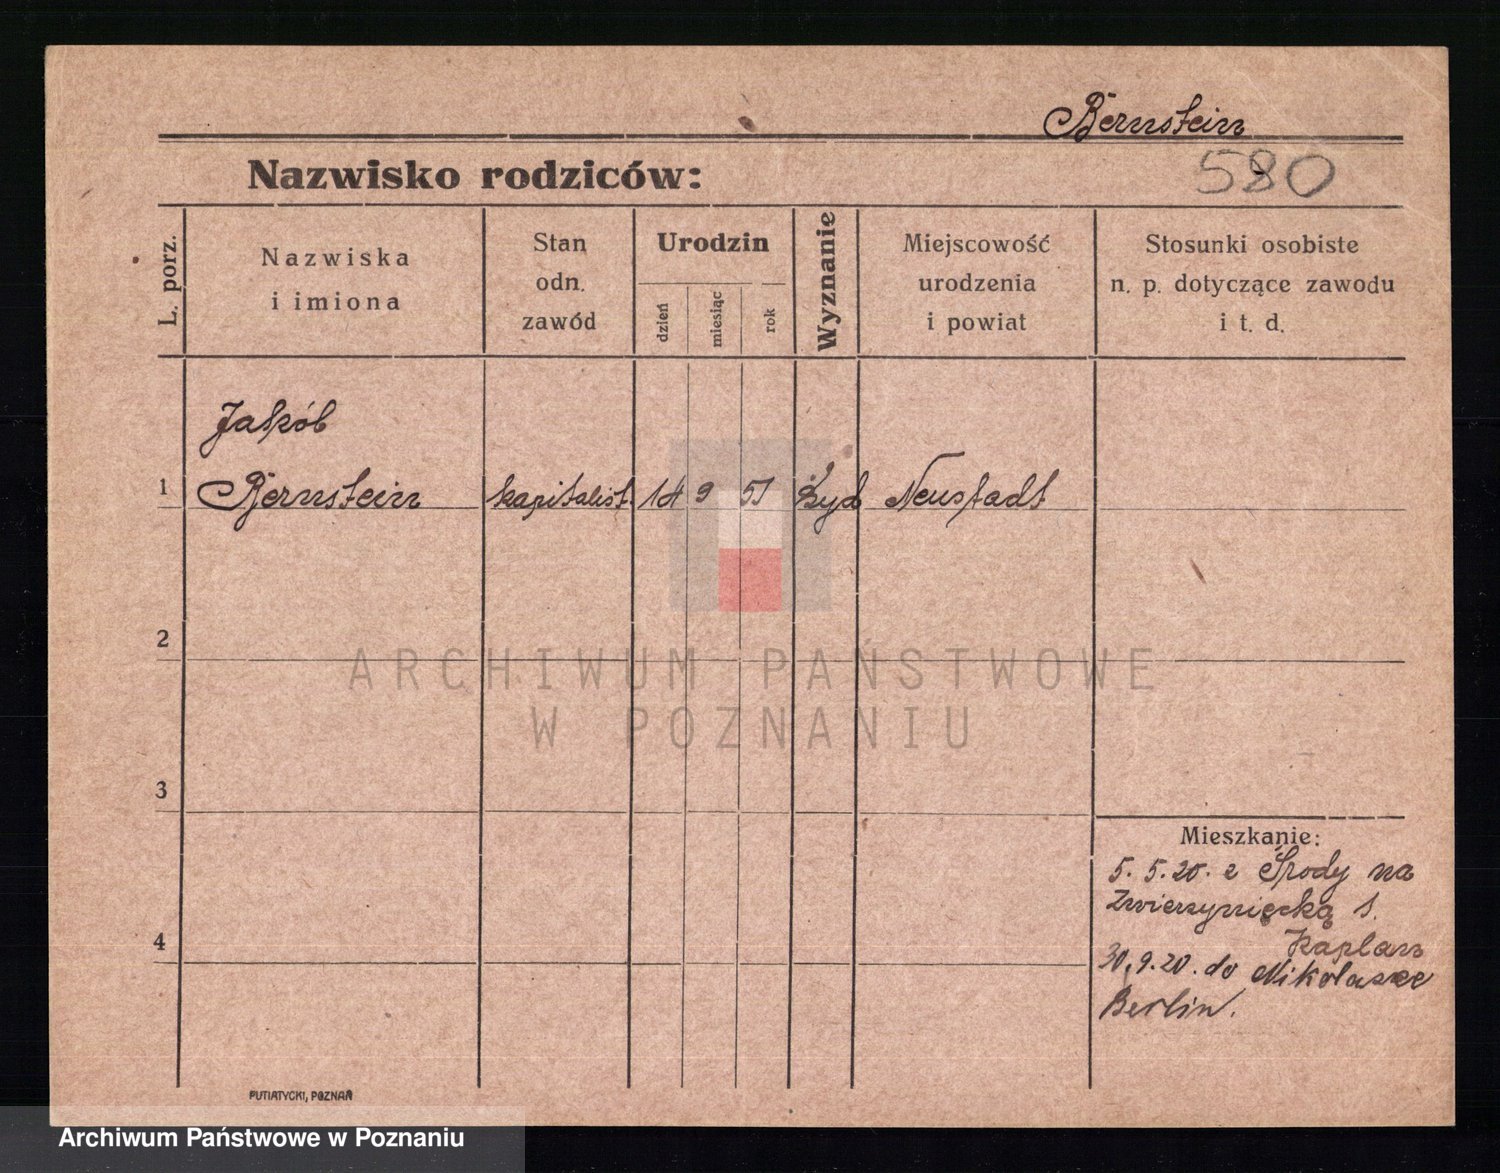 Bernstein
Nazwisko rodziców:
580
L. porz.
Nazwiska
i imiona
Stan
odn.
zawód
Urodzin
dzień
miesiąc
rok
Wyznanie
Miejscowość
urodzenia
i powiat
Stosunki osobiste
n. p. dotyczące zawodu
i t. d.
Jakób
1 Bernstein kapitalist. 14 9 51 Żyd Neustadt
2
3
4
Mieszkanie:
5. 5. 20. z Środy na
Zwierzyniecką 1.
Kaplan
30.9.20. do Nikolasee
Berlin.
PUTIATYCKI, POZNAŃ
ARCHIWUM PAŃSTWOWE
W POZNANIU
Archiwum Państwowe w Poznaniu